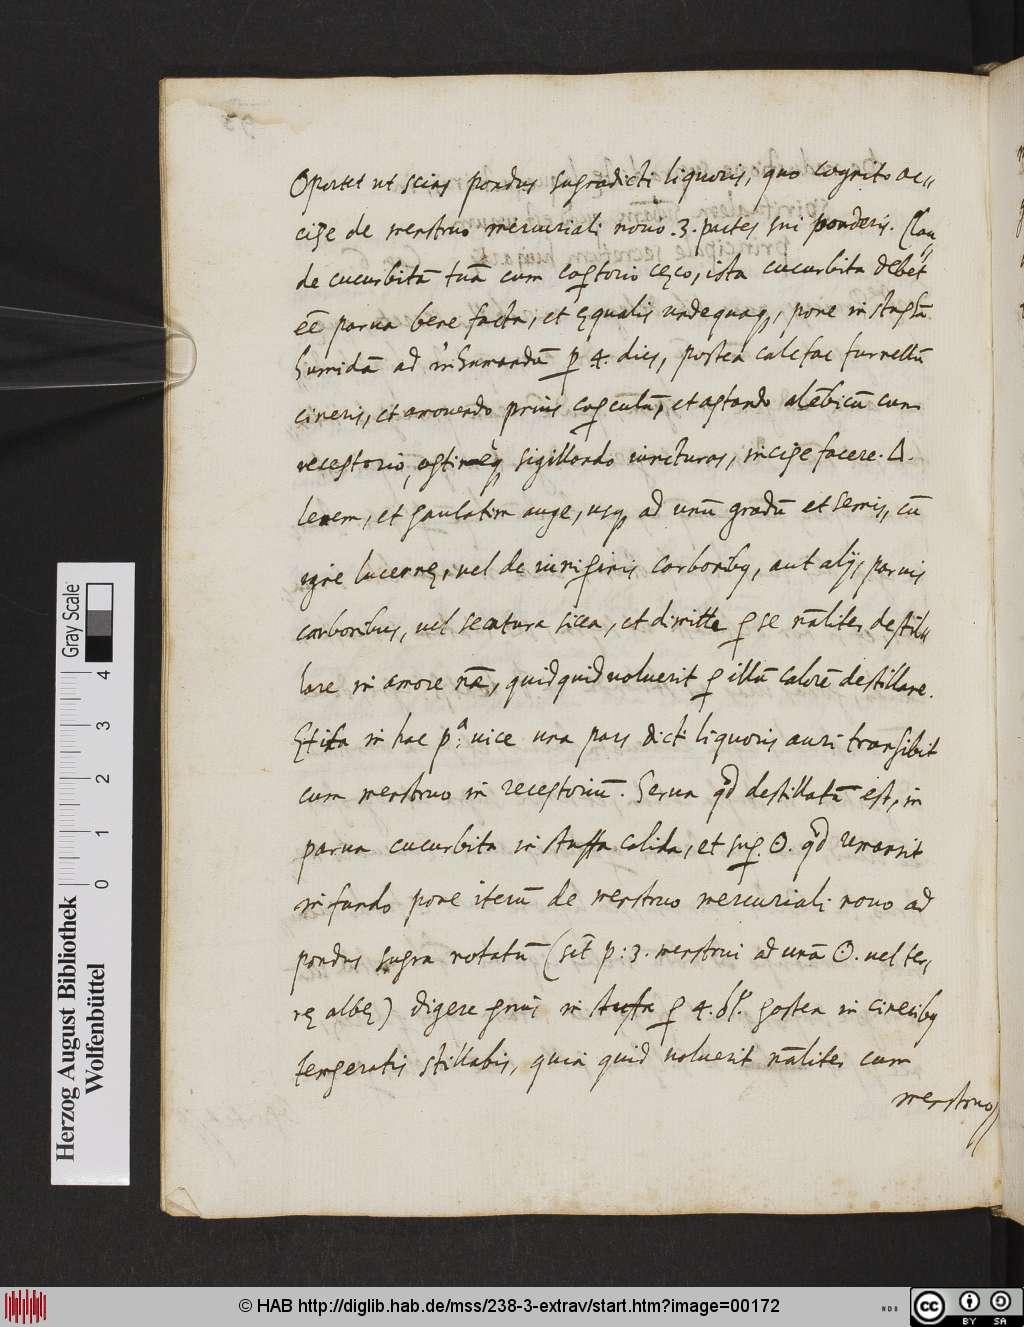 Oportet ut scias pondus supradicti liquoris, quo cognito ac„
cipe de menstruo mercuriali nouo .3. partes sui ponderis. Clau„
de cucurbitā tuā cum coꝑtorio cęco, ista cucurbita debet
eē parua bene facta, et ęqualis undequaq, pone in stuphā
humidā ad inhumandū p 4. dies, postea calefac furnellū
cineris, et amouendo prius coꝑculū, et aptando alēbicū cum
receptorio, sigillando iuncturas, incipe facere .△.
lenem, et paulatim auge, usq ad unū gradū et semis, cū
igne lucernę, uel de iuniperis carbonibꝫ, aut alijs paruis
carbonibus, uel secatura sicca, et dimitte ꝑ se nāliter destil„
lare in amore næ, quidquid uoluerit ꝑ illū calorē destillare.
Et ita in hac pᵃ: uice una pars dicti liquoris auri transibit
cum menstruo in receptoriū. Serua qd destillatū est, in
parua cucurbita in stuffa calida, et suꝑ .☉. qd remansit
in fundo pone iterū de menstruo mercuriali nouo ad
pondus supra notatū (scit p: 3. menstrui ad unā ☉. uel ter„
rę albę) digere prius in stufa ꝑ 4. postea in cineribꝫ
temperatis stillabis, quia quid uoluerit nāliter cum
menstruo
Herzog August Bibliothek
Wolfenbüttel
Gray Scale
0 1 2 3 4
© HAB http://diglib.hab.de/mss/238-3-extrav/start.htm?image=00172
cc BY SA